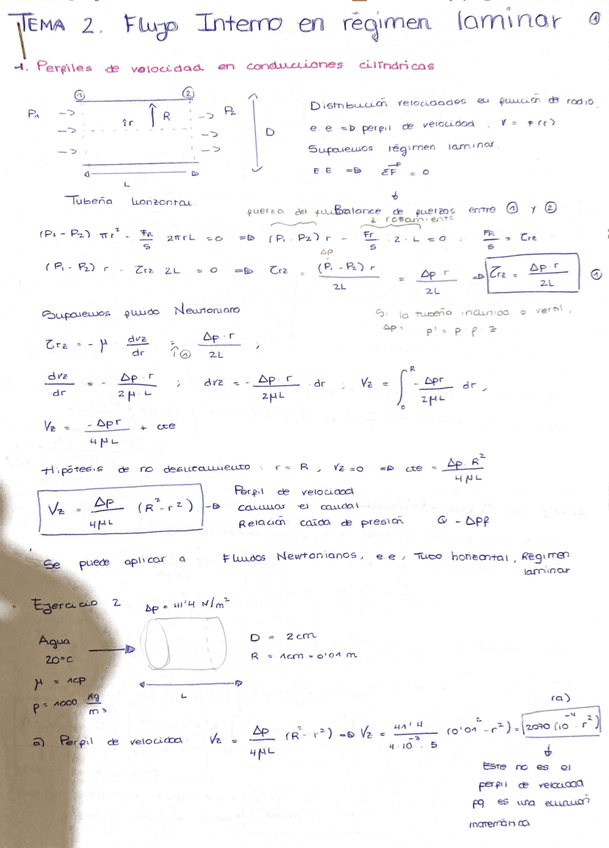 TEMA 2. Flujo Interno en régimen laminar ①
1. Perfiles de velocidad en conducciones cilíndricas
① ②
P₁ → ↕r R → P₂ D
L
Distribución velocidades en función de radio.
e.e ⇒ perfil de velocidad. V = f(r)
Suponemos régimen laminar.
E E ⇒ ΣF = 0
Tubería horizontal
Balance de fuerzas entre ① y ②
+ rozamiento
(P₁ - P₂) πr² - FR/S 2πrL = 0 ⇒ (P₁ - P₂) r - Fr/S · 2 · L = 0, FR/S = τrz
Δp
(P₁ - P₂) r - τrz 2L = 0 ⇒ τrz = (P₁ - P₂) r / 2L = Δp · r / 2L ⇒ τrz = Δp · r / 2L ①
Suponemos fluido Newtoniano
Si la tubería inclinada o vertil,
τrz = -μ dvz/dr = ↑① Δp · r / 2L ,
dvz/dr = - Δp · r / 2μ L ; dvz = - Δp · r / 2μL · dr , Vz = ∫₀ᴿ - Δpr / 2μL dr ,
Vz = -Δpr / 4μL + cte
Hipótesis de no deslizamiento : r = R , Vz = 0 ⇒ cte = Δp R² / 4μL
Vz = Δp / 4μL (R² - r²) ⇒ Perfil de velocidad
calcular el caudal
Relación caída de presión Q - ΔPf
Se puede aplicar a Fluidos Newtonianos, e.e, Tubo horizontal, Régimen
laminar
· Ejercicio 2 Δp = 41'4 N/m²
Agua
20°C
μ = 1cp
ρ = 1000 kg/m³
L
D = 2cm
R = 1cm = 0'01 m
ra)
a) Perfil de velocidad Vz = Δp / 4μL (R² - r²) ⇒ Vz = 41'4 / 4·10⁻³ · 5 (0'01² - r²) = 2070 (10⁻⁴ - r²)
Este no es el
perfil de velocidad
pq es una ecuación
matemática